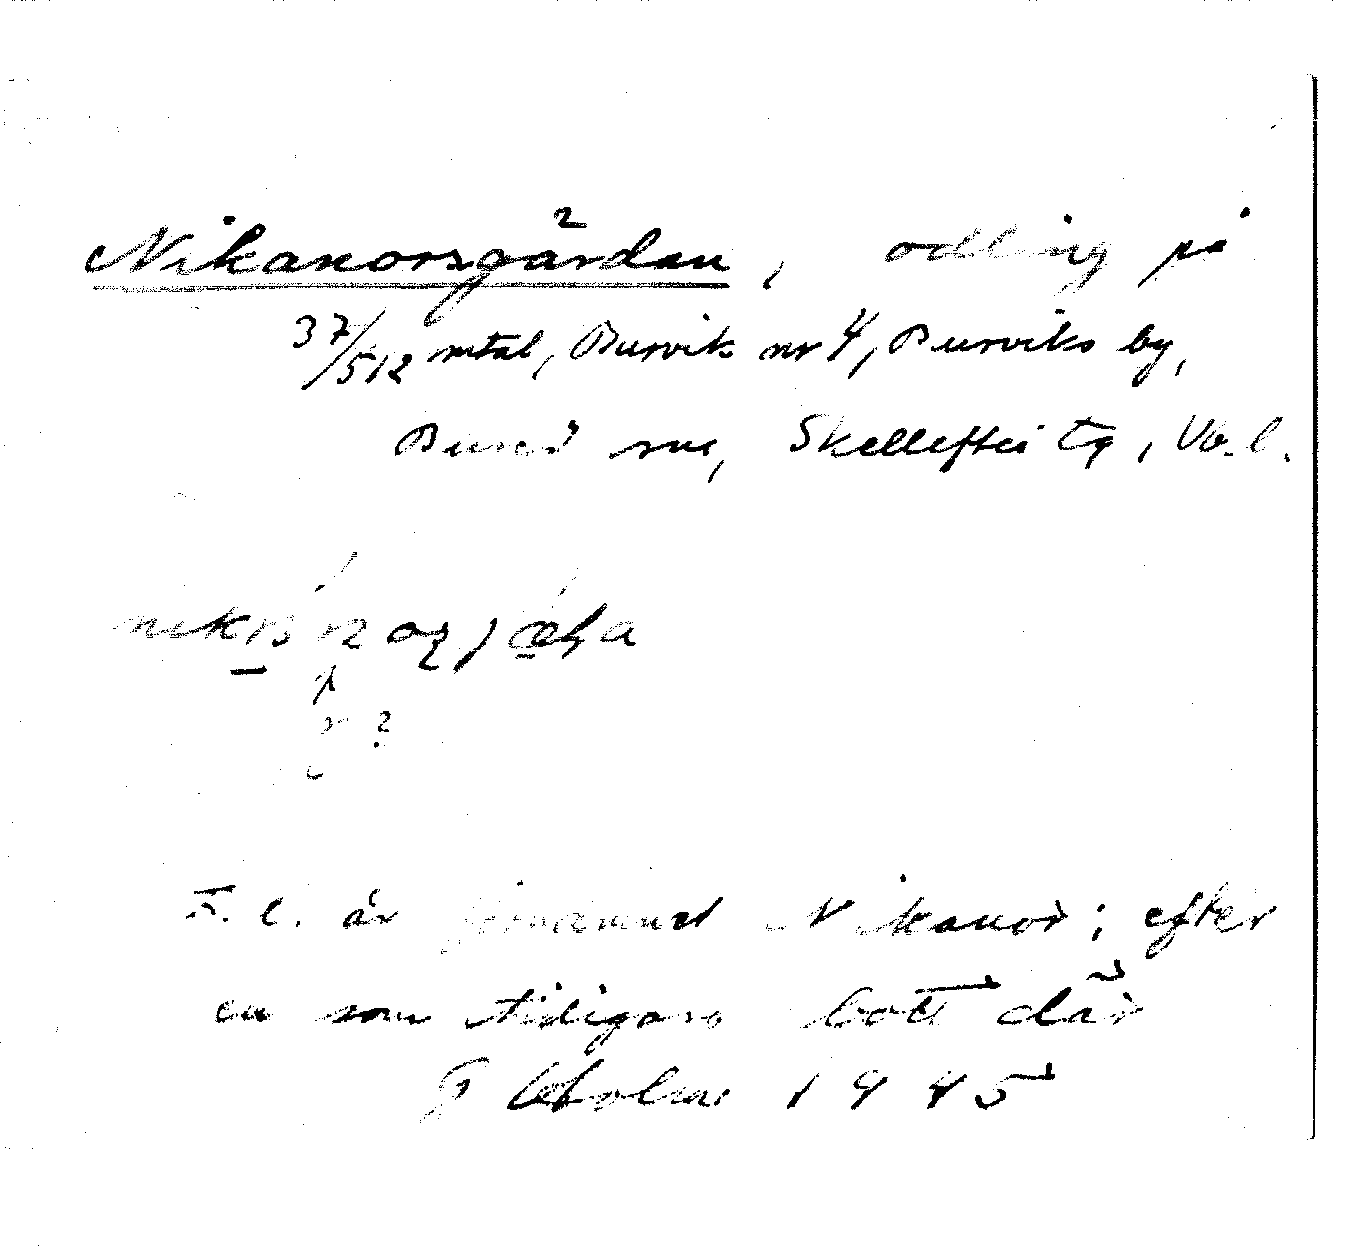 Nikanorsgårdan, odling på
37/512 mtal, Burvik nr 4, Burviks by,
Bureå sn, Skellefteå tg, Vb. l.
F. l. är försvunnet Nikanor; efter
en som tidigare bott där
G Holm 1945